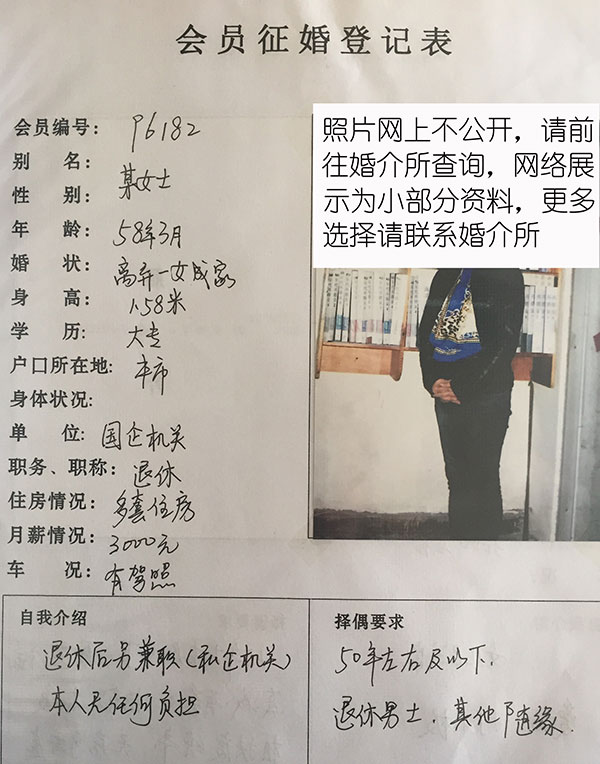 会员征婚登记表
会员编号: 96182
别 名: 某女士
性 别:
年 龄: 58年3月
婚 状: 离异一女成家
身 高: 1.58米
学 历: 大专
户口所在地: 本市
身体状况:
单 位: 国企机关
职务、职称: 退休
住房情况: 多套住房
月薪情况: 3000元
车 况: 有驾照
照片网上不公开，请前
往婚介所查询，网络展
示为小部分资料，更多
选择请联系婚介所
自我介绍
退休后另兼职(私企机关)
本人无任何负担
择偶要求
50年左右及以下.
退休男士.其他随缘.